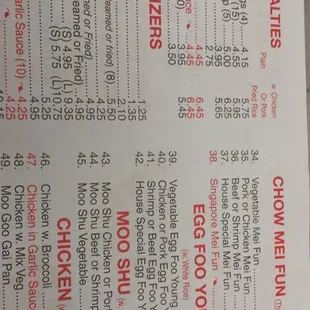 ALTIES
Plain
w. Chicken
Or Pork
Fried Rice
(4) 4.15 5.75
(15) 4.55
(5) 5.00
2.75
3.95 6.45
3.95 6.45
5.50 5.45
IZERS
1.25
1.35
2.10
(8) 5.55
or Fried)
(S) 4.95 (L) 9.35
or Fried)
(S) 5.75
4.95
4.95
5.25
4.25
arlic Sauce (10) 4.25
CHOW MEI FUN
34. Vegetable Mei Fun
35. Pork or Chicken Mei Fun
36. Beef or Shrimp Mei Fun
37. House Special Mei Fun
38. Singapore Mei Fun
EGG FOO YO
(w. White Rice)
39. Vegetable Egg Foo Young
40. Chicken or Pork Egg Foo Y
41. Shrimp or Beef Egg Foo Y
42. House Special Egg Foo Y
MOO SHU (w.
43. Moo Shu Chicken or Pork
44. Moo Shu Beef or Shrimp
45. Moo Shu Vegetable
CHICKEN
46. Chicken w. Broccoli
47. Chicken in Garlic Sauce
48. Chicken w. Mix Veg.
49. Moo Goo Gai Pan